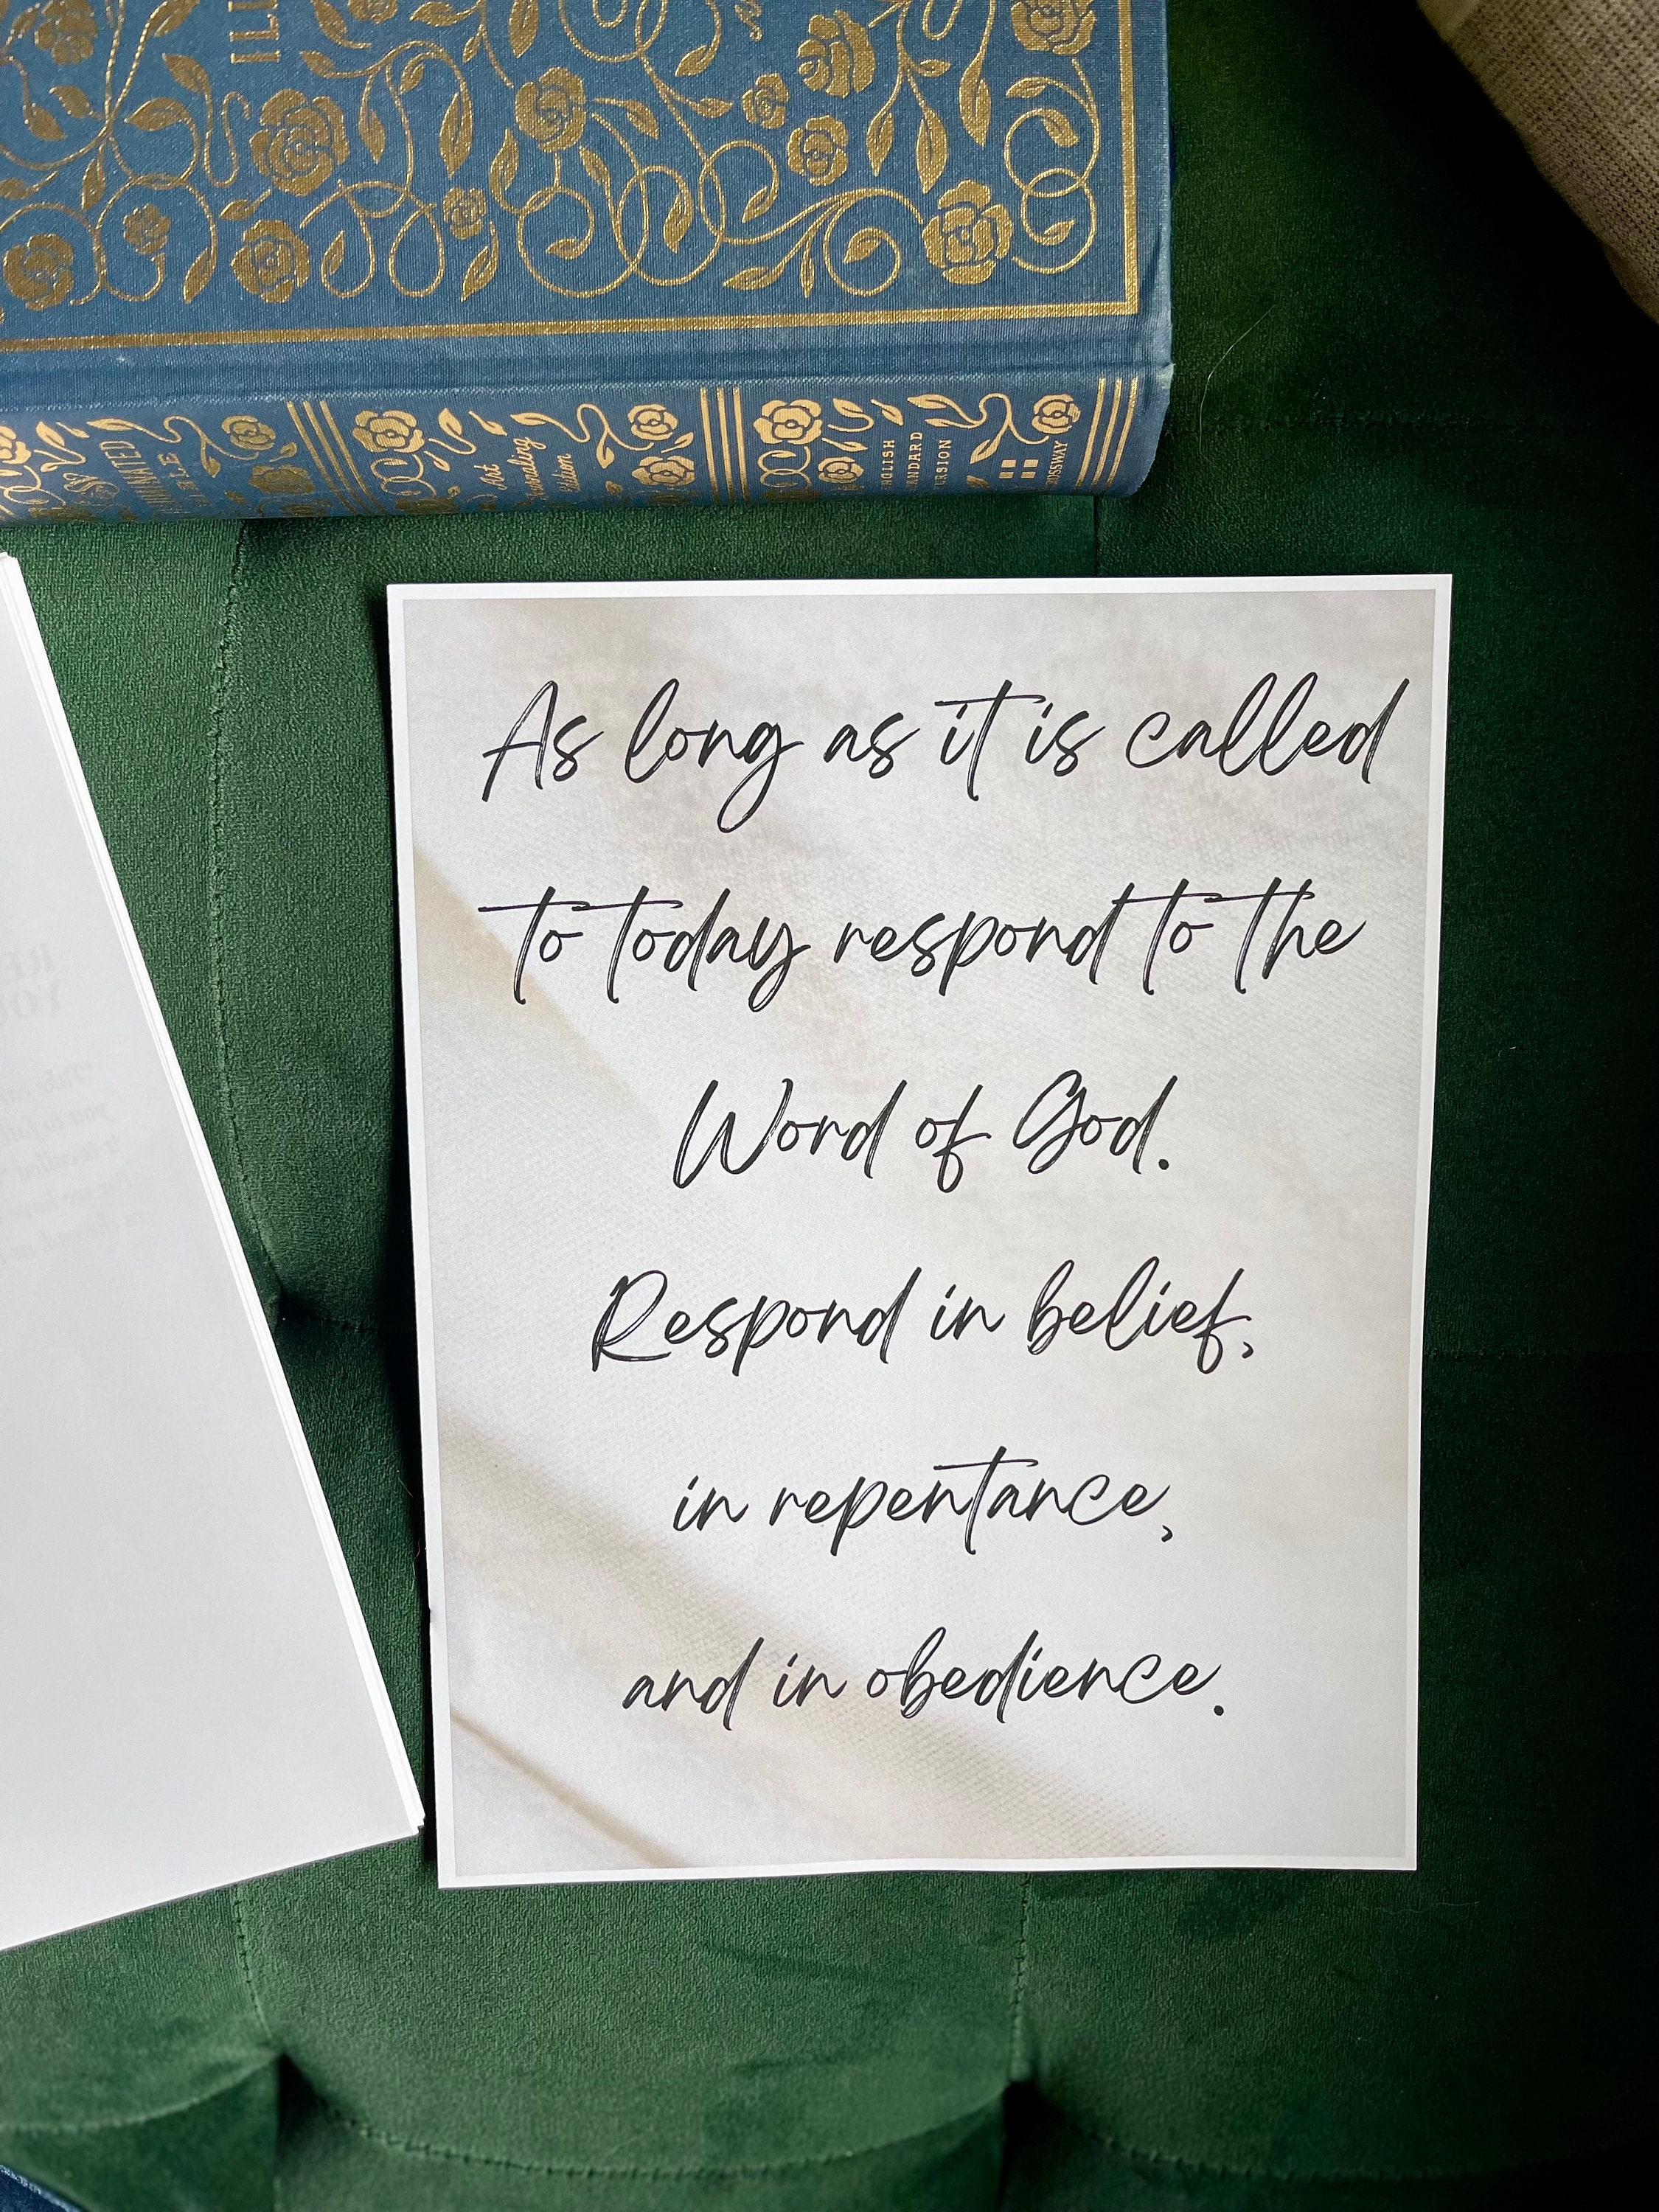 ILL
ILLUMINATED
BIBLE
Art
Journaling
Edition
ENGLISH
STANDARD
VERSION
CROSSWAY
As long as it is called
to today respond to the
Word of God.
Respond in belief,
in repentance,
and in obedience.